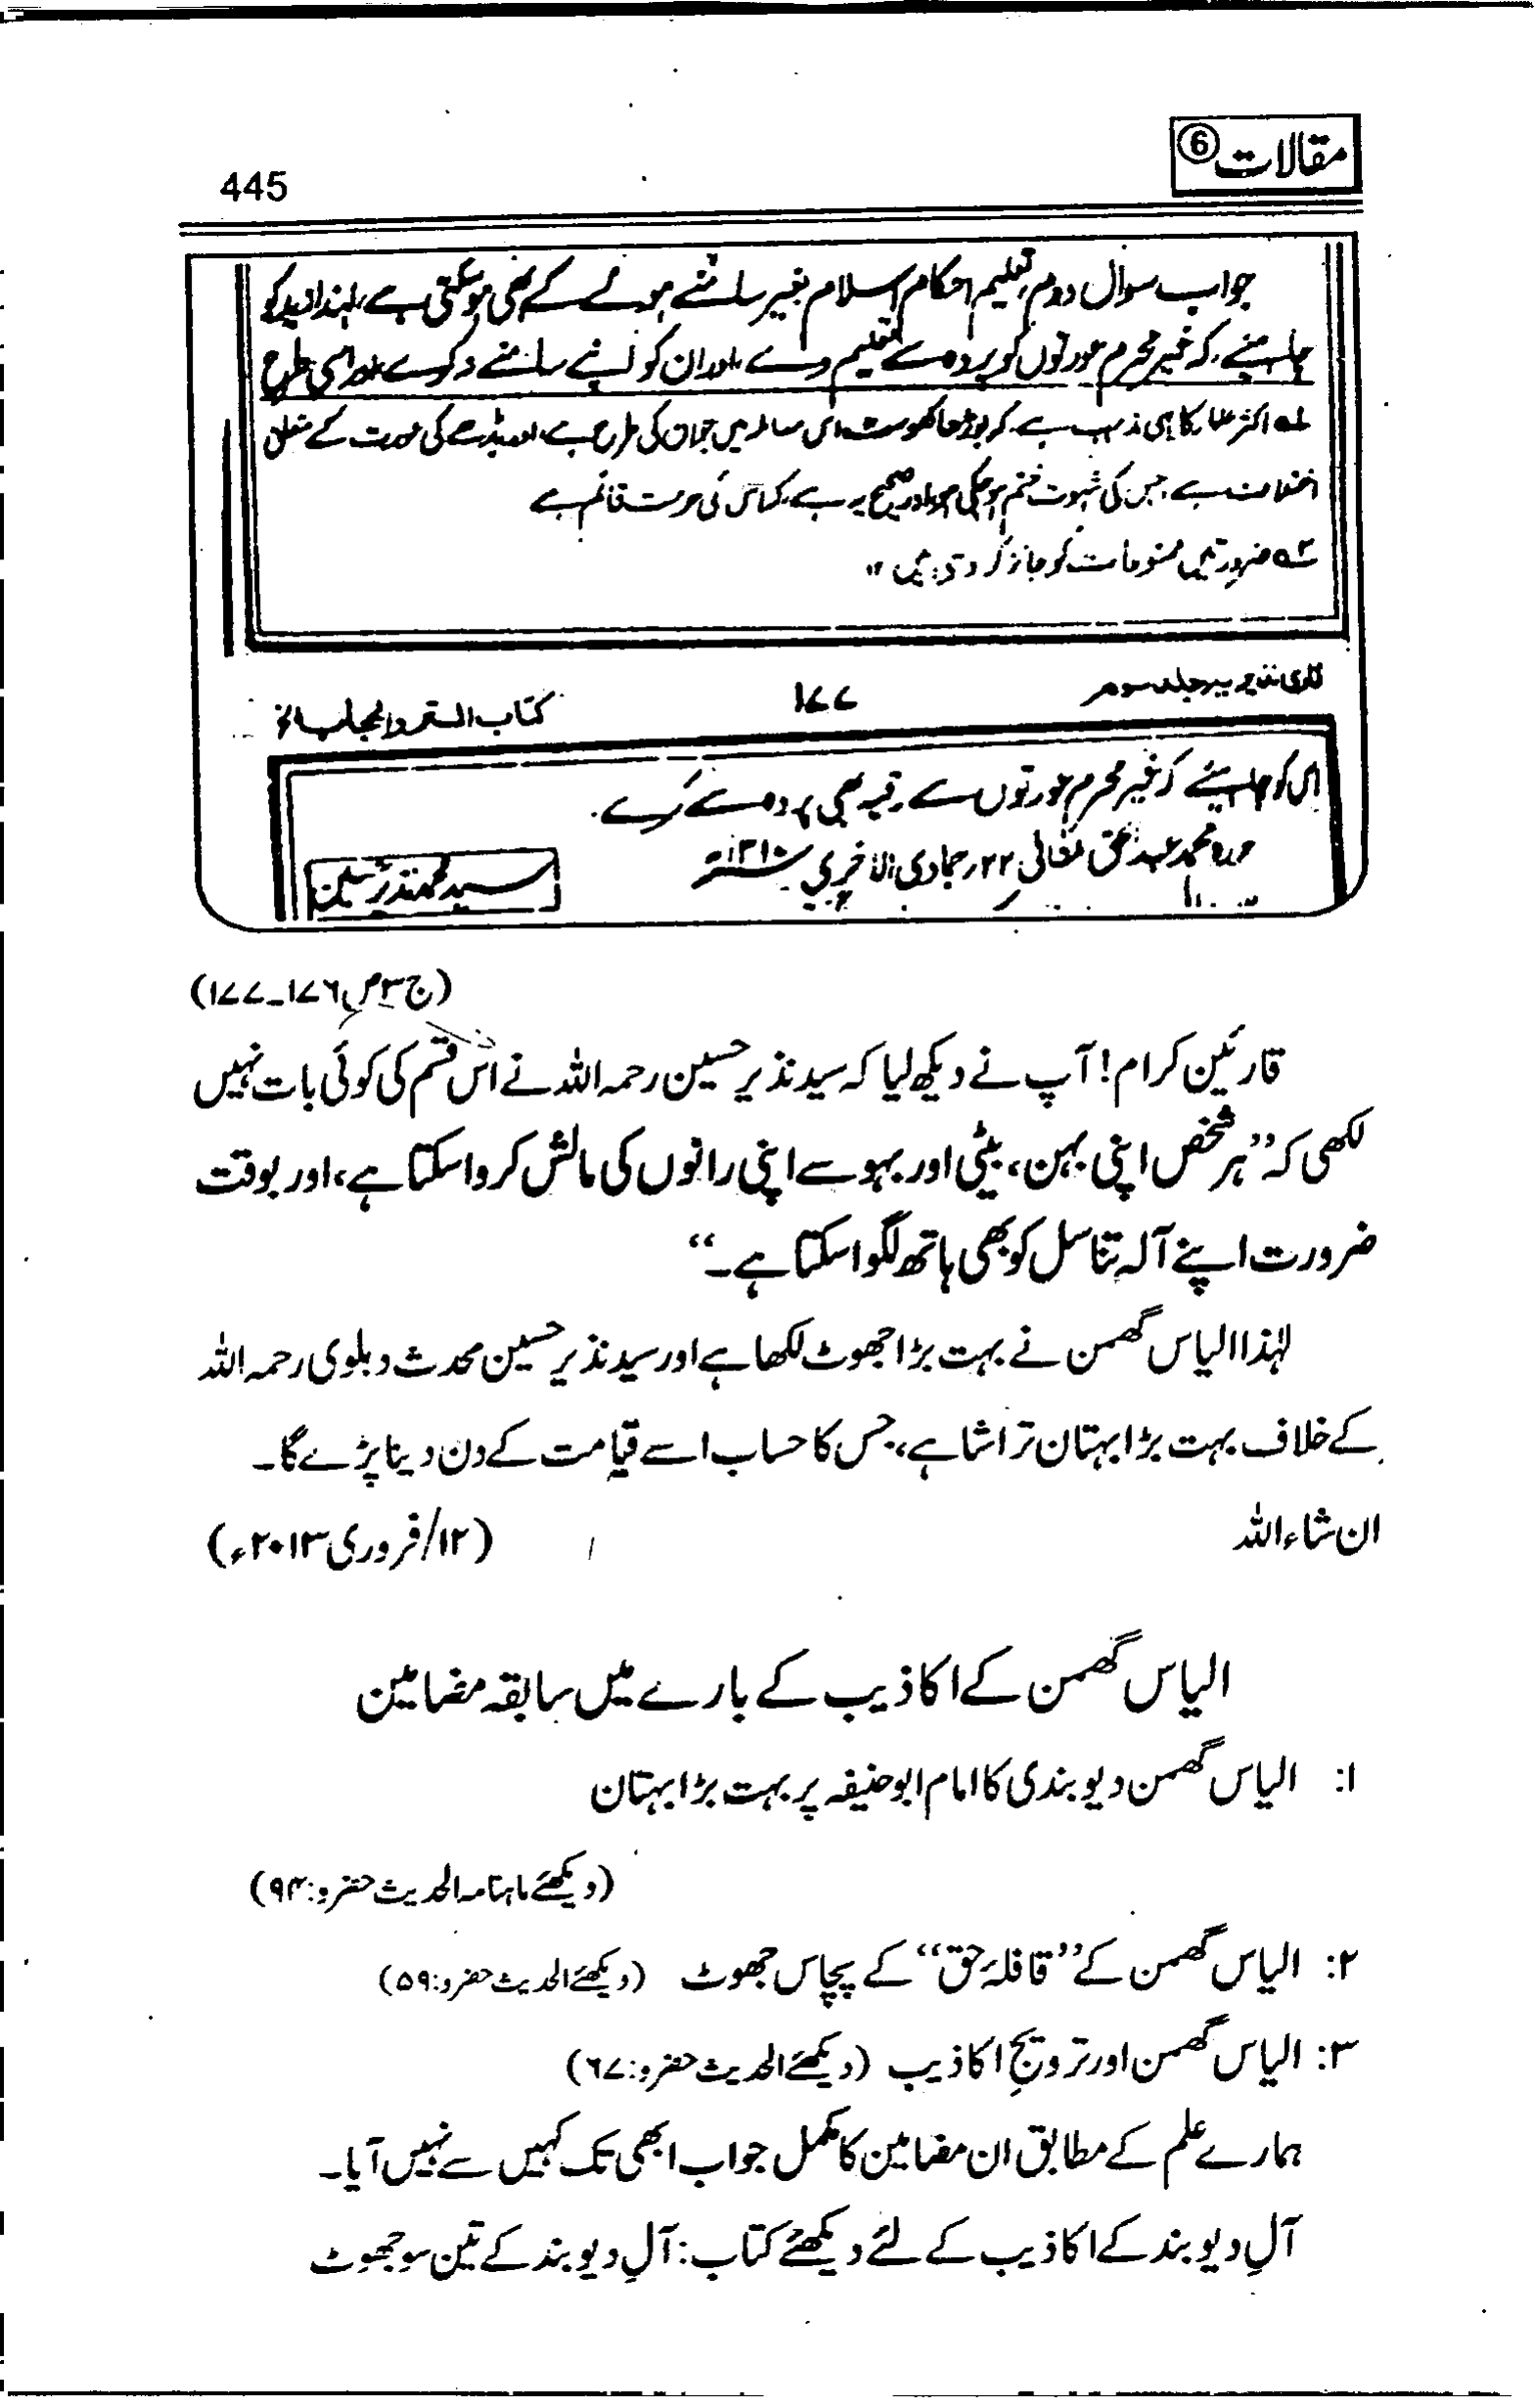 مقالات ⑥
445
جواب سوال دوم، تعلیم احکام اسلام بغیر سامنے ہونے کے بھی ہوسکتی ہے، لہٰذا زید کو
چاہئیے کہ غیر محرم عورتوں کو پردہ سے تعلیم دے، اور ان کو اپنے سامنے نہ کرے، اور اسی طرح
۱ه اکثر علماء کا یہی مذہب ہے کہ بوڑھا کھوسٹ اس معاملہ میں جوان کی طرح ہے، اور بڈھے کی عورت کے متعلق
اختلاف ہے جس کی شہوت ختم ہوچکی ہو، اور صحیح یہ ہے کہ اس کی حرمت قائم ہے
۲ه ضرورتیں ممنوعات کو جائز کر دیتی ہیں ۱۲
فتاوی نذیریہ جلد سوم
۱۷۷
کتاب الستر والحجاب الخ
اس کو چاہئیے کہ غیر محرم عورتوں سے رقیہ بھی پردہ سے کرے۔
حررہ محمد عبد الحق ملتانی ۲۲ر جمادی الاخری سنہ ۱۳۱۰ھ
سید محمد نذیر حسین
(ج۳ص۱۷۶۔۱۷۷)
قارئین کرام! آپ نے دیکھ لیا کہ سید نذیر حسین رحمہ اللہ نے اس قسم کی کوئی بات نہیں
لکھی کہ ”ہر شخص اپنی بہن، بیٹی اور بہو سے اپنی رانوں کی مالش کروا سکتا ہے، اور بوقت
ضرورت اپنے آلہ تناسل کو بھی ہاتھ لگوا سکتا ہے۔“
لہٰذا الیاس گھمن نے بہت بڑا جھوٹ لکھا ہے اور سید نذیر حسین محدث دہلوی رحمہ اللہ
کے خلاف بہت بڑا بہتان تراشا ہے، جس کا حساب اسے قیامت کے دن دینا پڑے گا۔
ان شاء اللہ (۱۲/فروری ۲۰۱۳ء)
الیاس گھمن کے اکاذیب کے بارے میں سابقہ مضامین
۱: الیاس گھمن دیوبندی کا امام ابوحنیفہ پر بہت بڑا بہتان
(دیکھئے ماہنامہ الحدیث حضرو: ۹۴)
۲: الیاس گھمن کے ”قافلۂ حق“ کے پچاس جھوٹ (دیکھئے الحدیث حضرو: ۵۹)
۳: الیاس گھمن اور ترویجِ اکاذیب (دیکھئے الحدیث حضرو: ۶۷)
ہمارے علم کے مطابق ان مضامین کا مکمل جواب ابھی تک کہیں سے نہیں آیا۔
آلِ دیوبند کے اکاذیب کے لئے دیکھئے کتاب: آلِ دیوبند کے تین سو جھوٹ